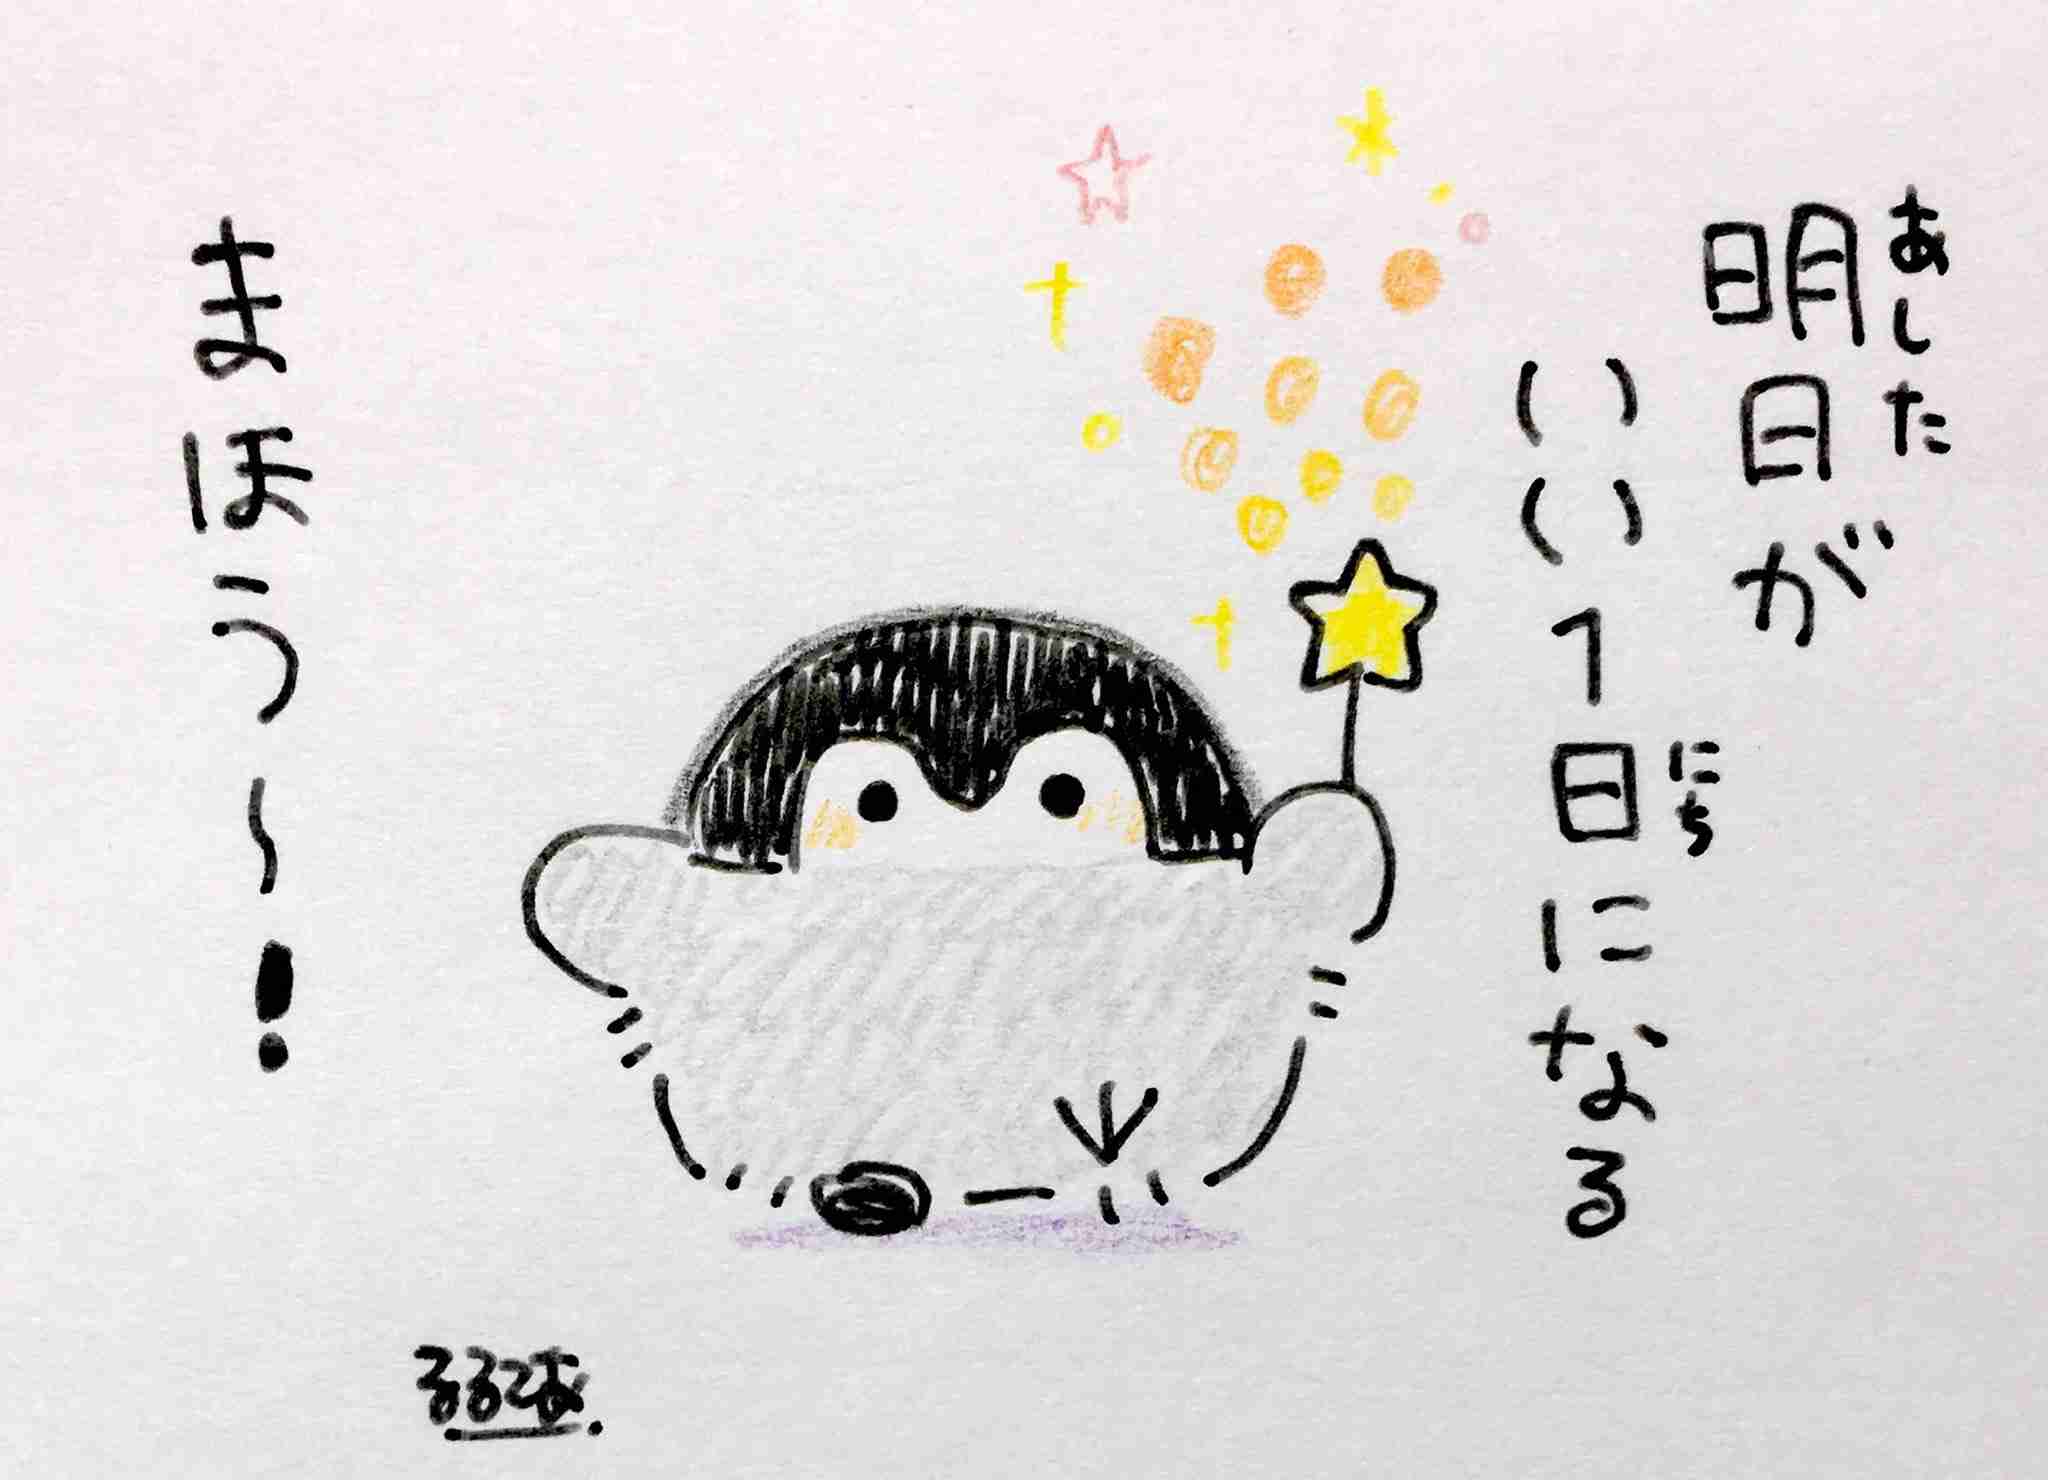 明日が
あした
いい1日になる
にち
まほう〜!
るるてあ.